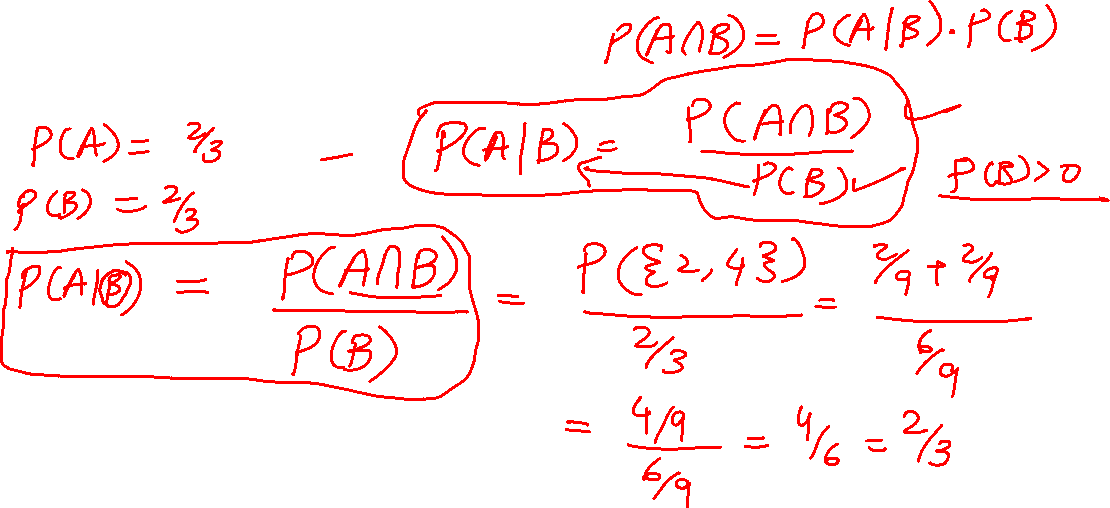 P(A∩B) = P(A|B)·P(B)
P(A) = 2/3 – P(A|B) = P(A∩B) / P(B) ✓ P(B)>0
P(B) = 2/3
P(A|B) = P(A∩B) / P(B) = P({2,4}) / 2/3 = 2/9 + 2/9 / 6/9
= 4/9 / 6/9 = 4/6 = 2/3